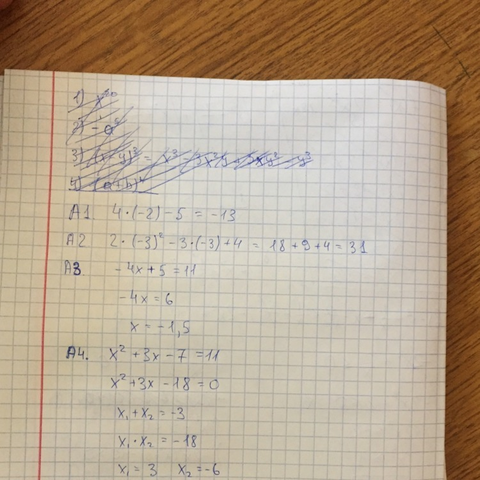 1) x
2) - a
3) (x - y)³ = x³ - 3x²y + 3xy² - y³
4) (a+b)
A1. 4·(-2)-5 = -13
A2 2·(-3)² -3·(-3)+4 = 18+9+4=31
A3 -4x+5=11
-4x=6
x=-1,5
A4. x²+3x-7=11
x²+3x-18=0
x₁+x₂=-3
x₁·x₂=-18
x₁=3 x₂=-6